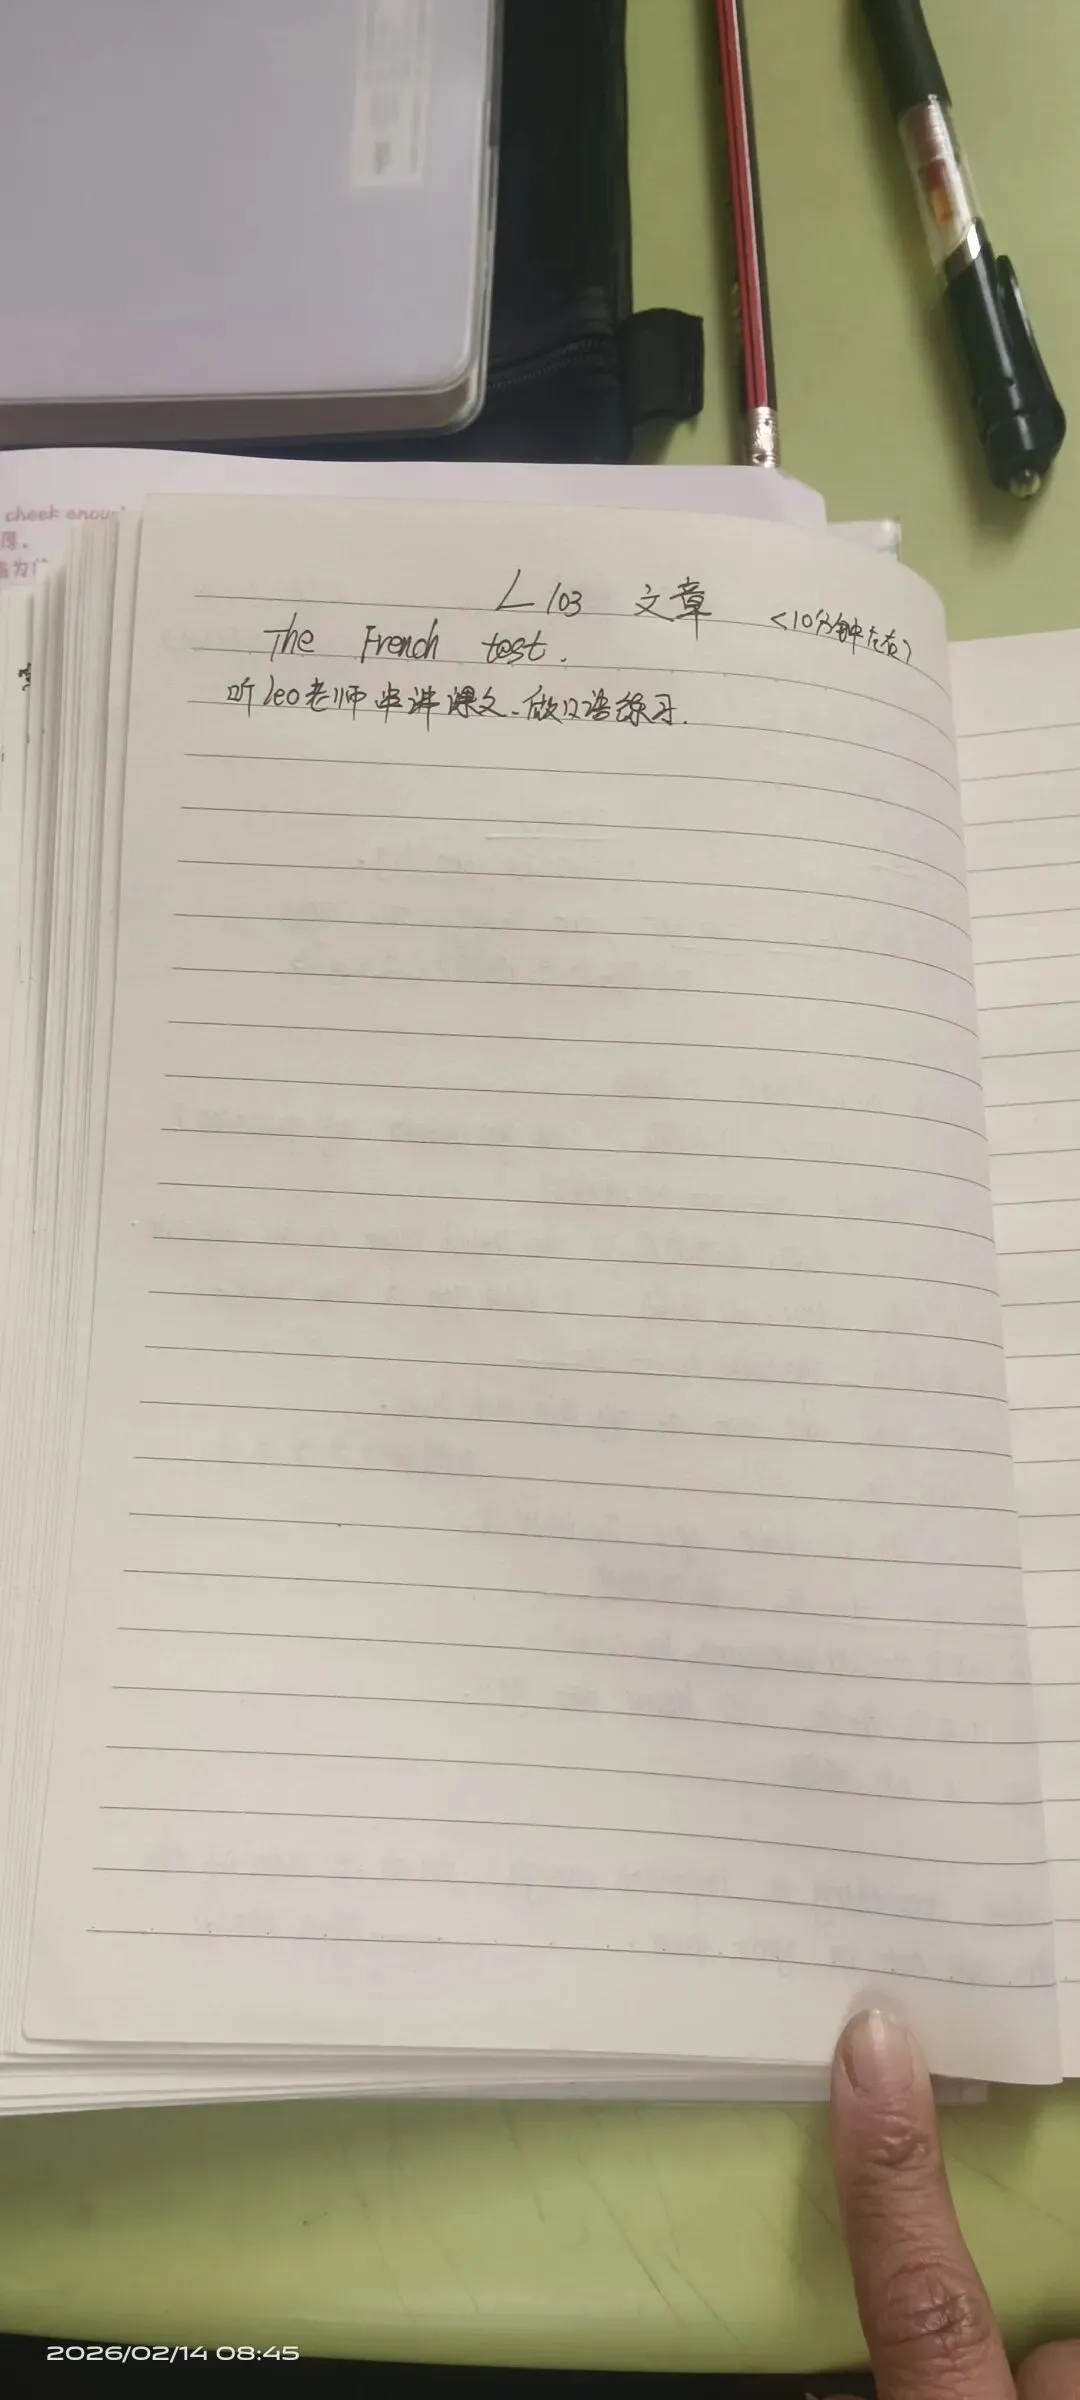 cheek enou
厚。
L103 文章 <10分钟左右>
The French test.
听leo老师串讲课文、做口语练习.
2026/02/14 08:45